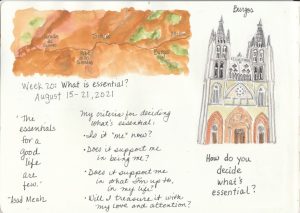 Burgos
Week 20: What is essential?
August 15-21, 2021
"The
essentials
for a
good
life
are
few."
-Todd Mesek
My criteria for deciding
what's essential:
• Is it "me" now?
• Does it support me
in being me?
• Does it support me
in what I'm up to,
in my life?
• Will I treasure it with
my love and attention?
How do you
decide
what's
essential?